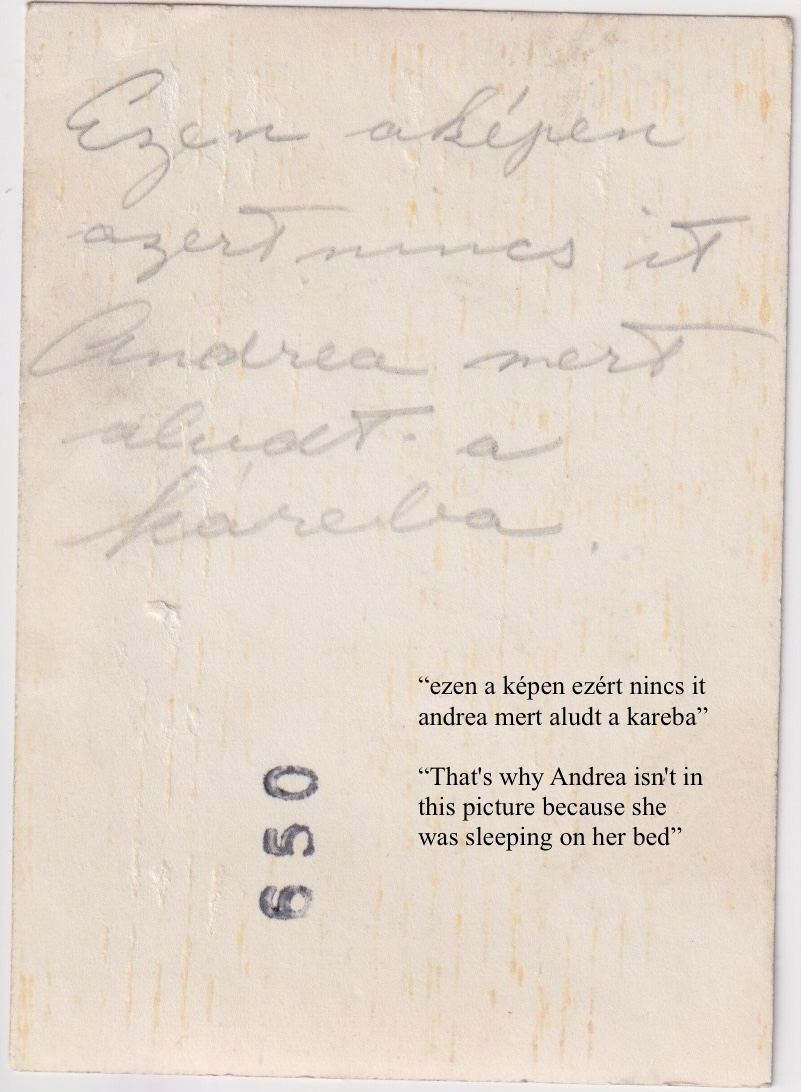 Ezen aképen
azert nincs it
Andrea mert
aludt a
káreba.
“ezen a képen ezért nincs it
andrea mert aludt a kareba”
“That's why Andrea isn't in
this picture because she
was sleeping on her bed”
650